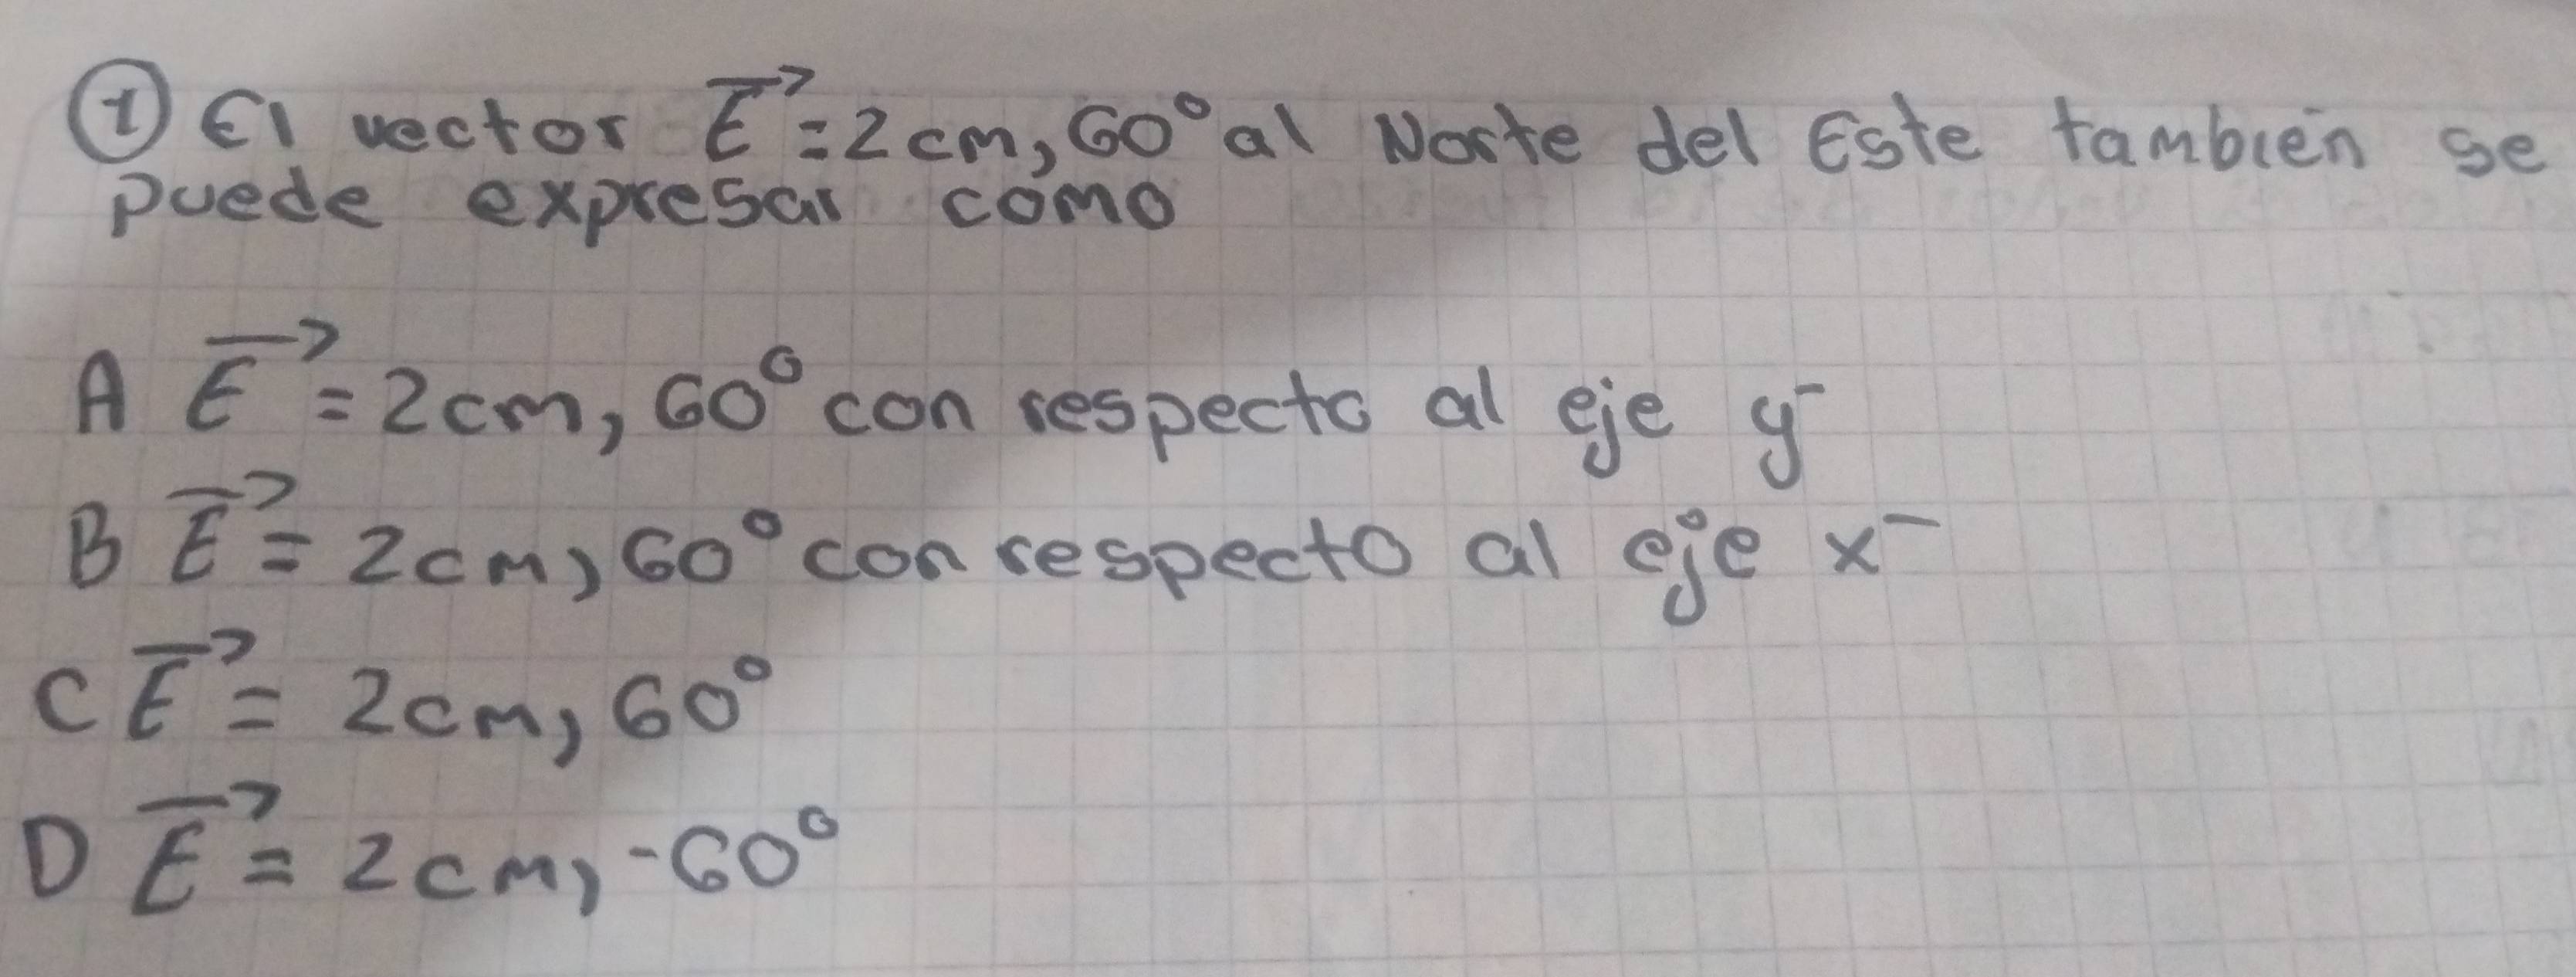 ① El vector E⃗ = 2cm, 60° al Norte del Este tambien se
puede expresar como
A E⃗ = 2cm, 60° con respecto al eje y⁻
B E⃗ = 2cm, 60° con respecto al eje x⁻
C E⃗ = 2cm, 60°
D E⃗ = 2cm, -60°